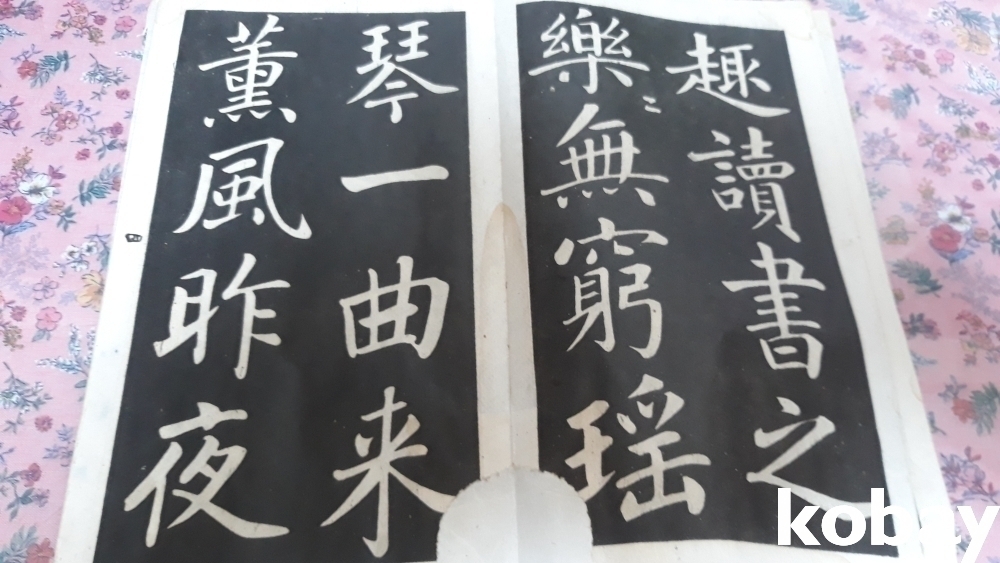 趣讀書之
樂二無窮瑶
琴一曲来
薰風昨夜
kobay